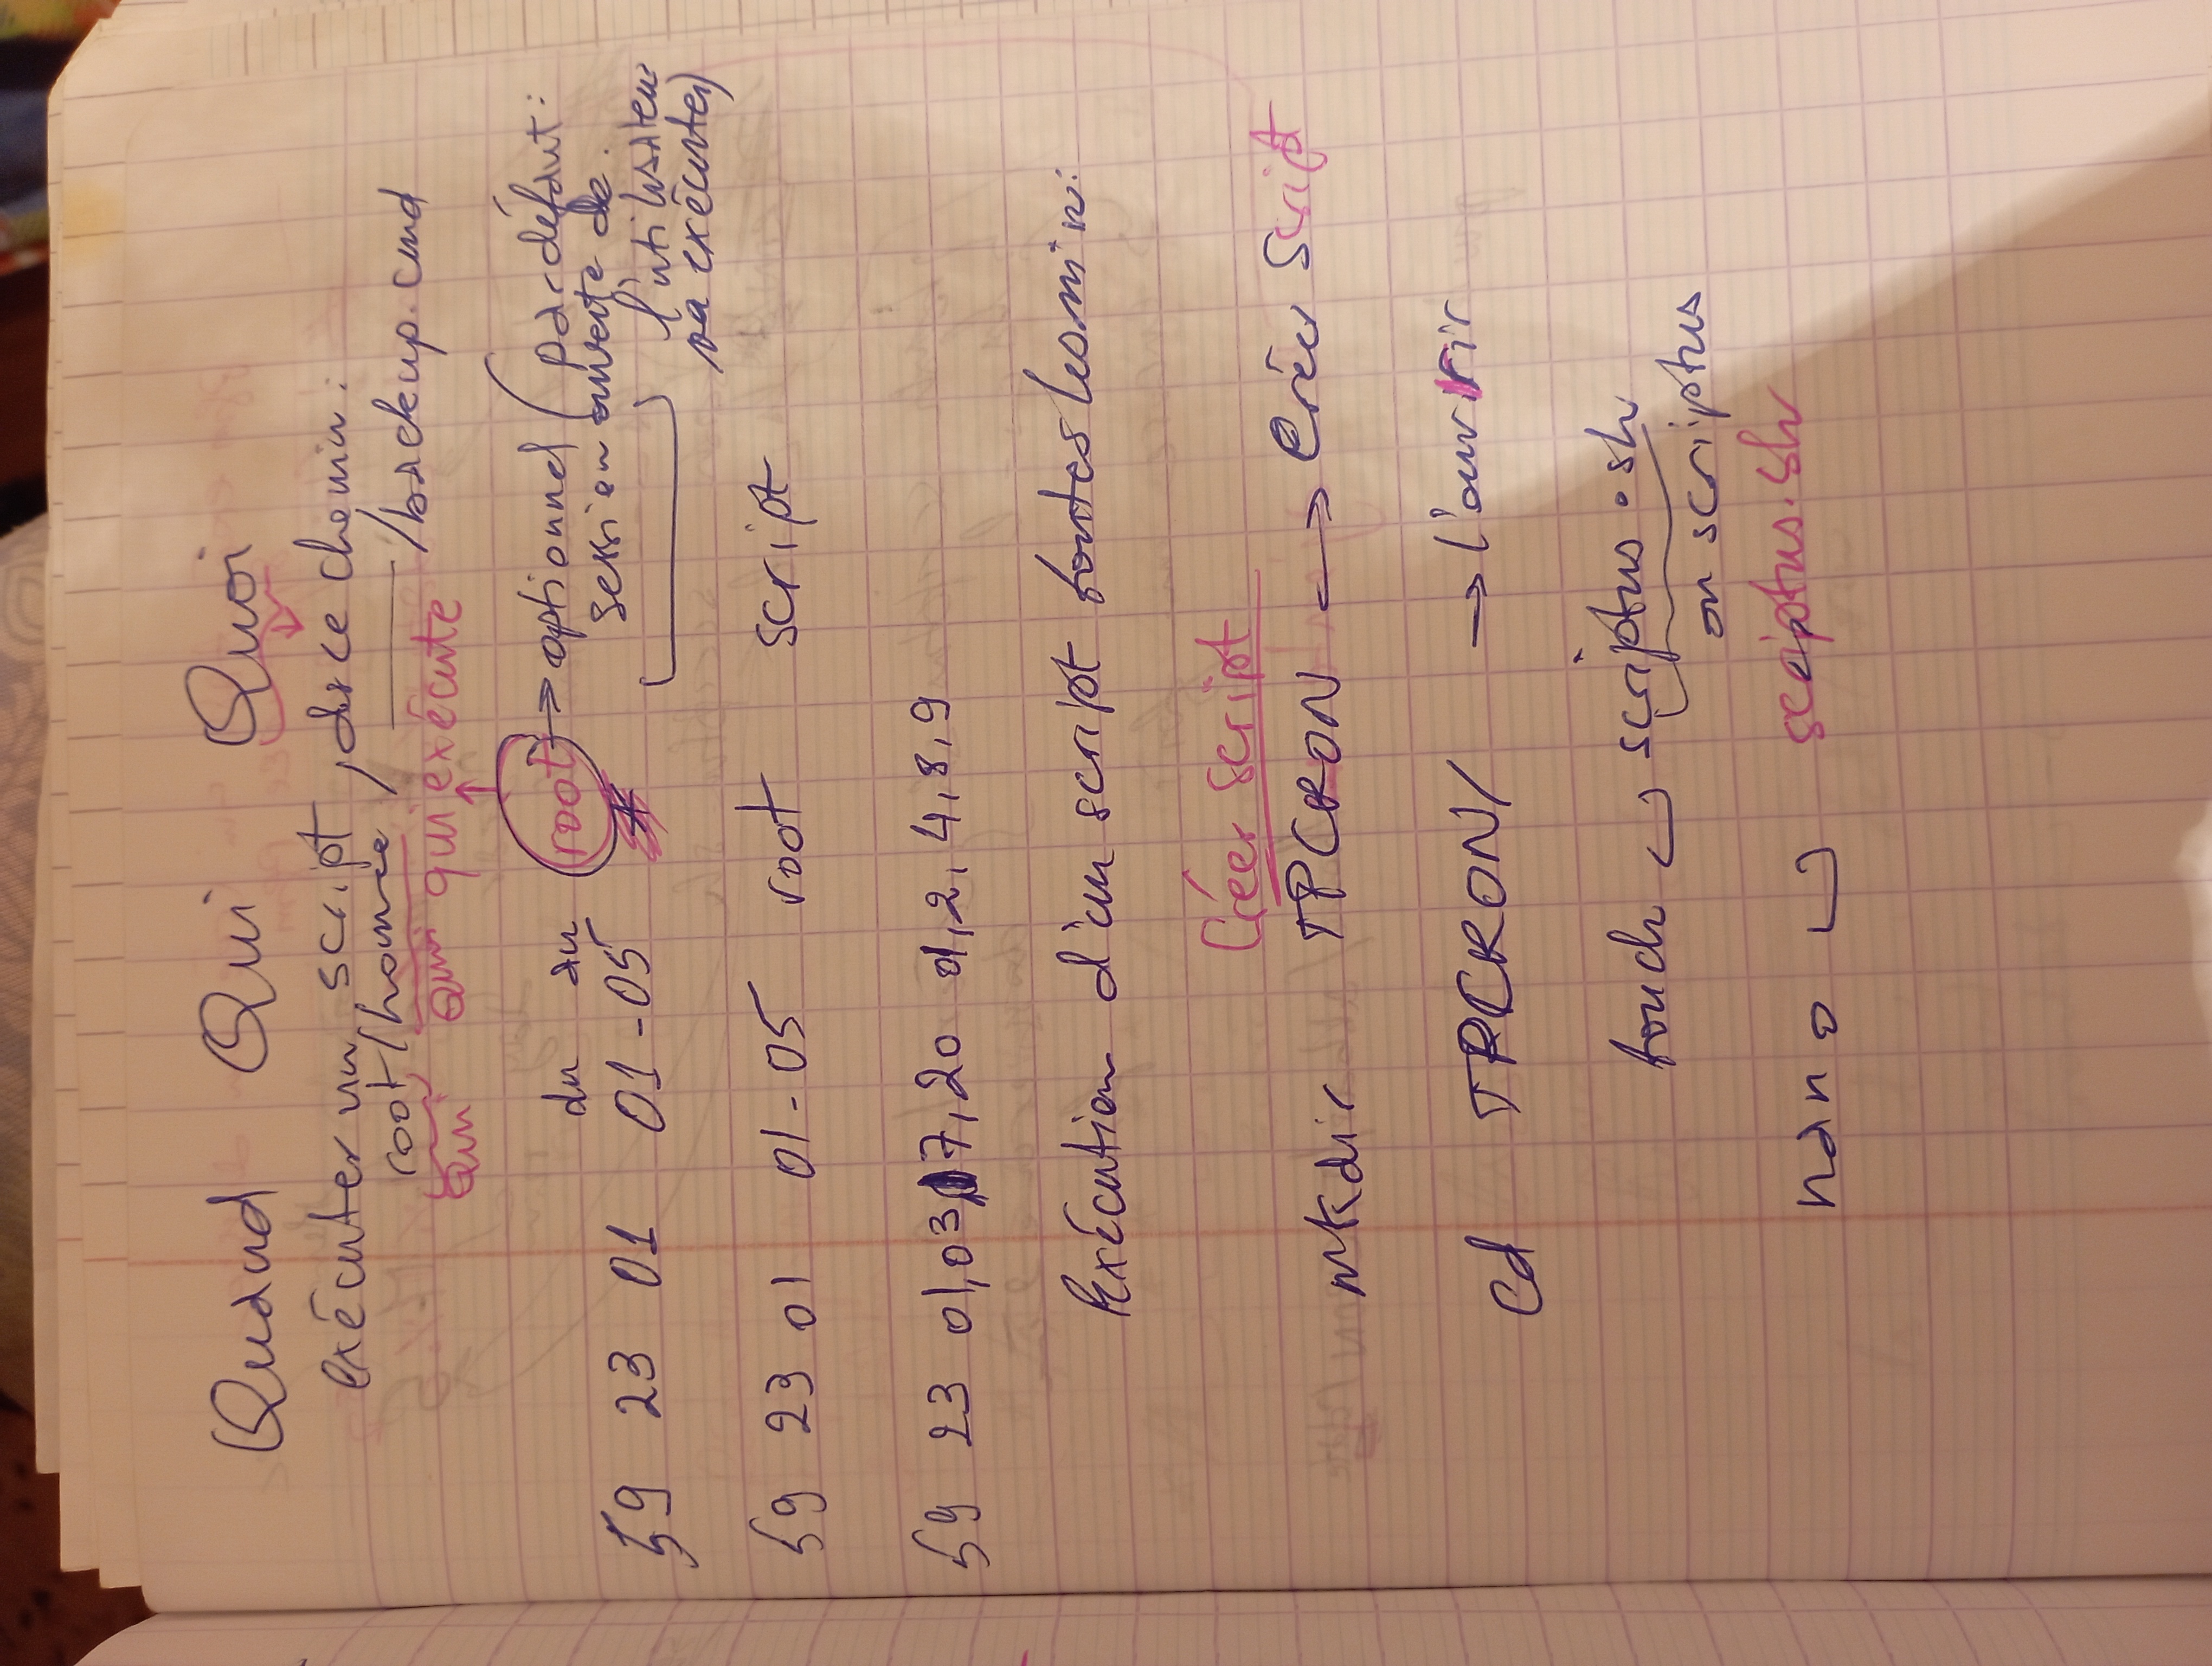 Quand Qui Quoi
exécuter un script, dire chemin:
root//home/ /backup.cmd
qui qui exécute
du au root → optionnel (par défaut:
59 23 01 01-05 session ouverte de
l'utilisateur
va exécuter)
59 23 01 01-05 root script
59 23 01,03,17,20 01,2,4,8,9
Exécution d'un script toutes les min:
Créer Script
mkdir TPCRON → Créer Script
cd TPCRON/ → l'ouvrir
touch ⎵ scriptus.sh
ou scriptus
nano ⎵ scriptus.sh